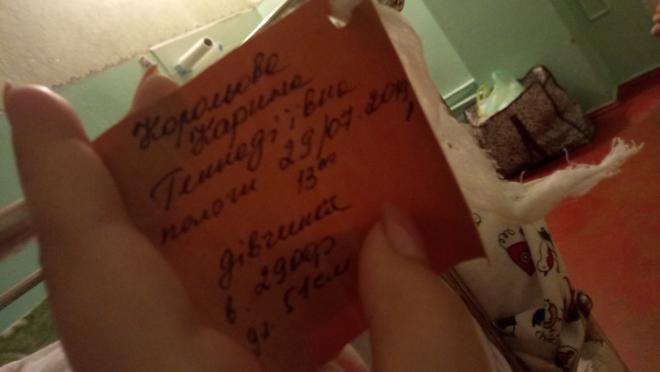 Корольова
Карина
Геннадіївна
пологи 29/07.2019,
13⁰⁰
дівчинка
в. 2900р
зр. 51см